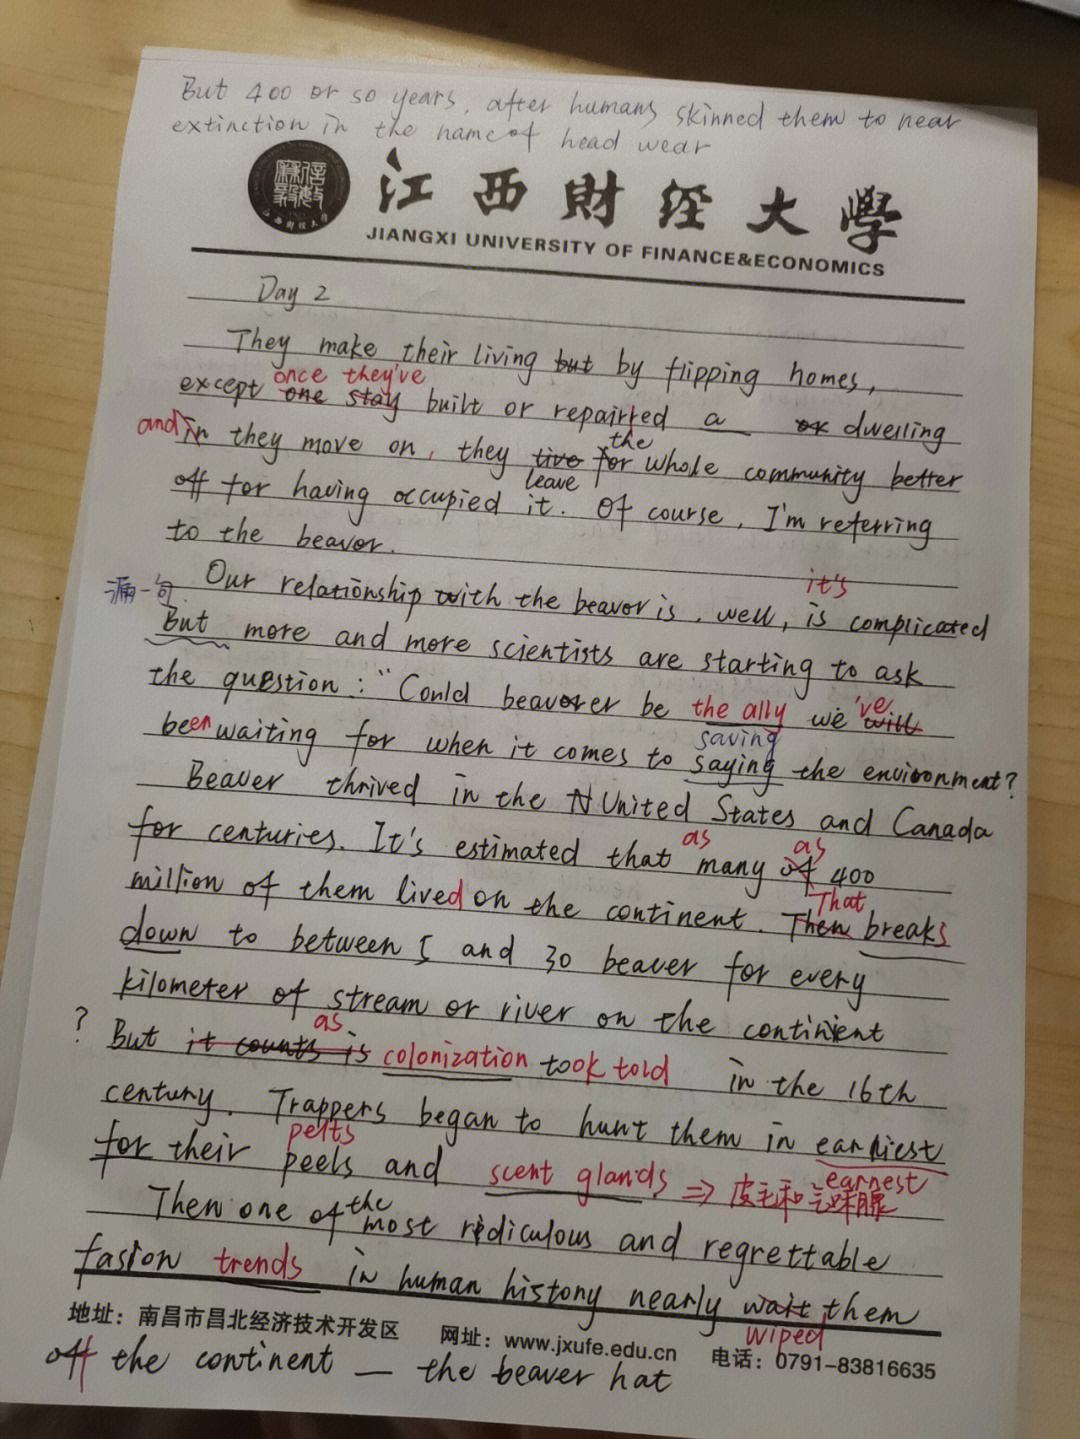 But 400 or so years, after humans skinned them to near
extinction in the name of head wear
江西財經大學
JIANGXI UNIVERSITY OF FINANCE&ECONOMICS
Day 2
They make their living but by flipping homes,
once they've
except one stay built or repairred a ok dwelling
and in they move on, they live for the whole community better
leave
off for having occupied it. Of course, I'm referring
to the beavor.
it's
漏一句 Our relationship with the beavor is, well, is complicated
But more and more scientists are starting to ask
the question: "Could beaverer be the ally we 've will
been waiting for when it comes to saying the environment?
saving
Beaver thrived in the N United States and Canada
for centuries. It's estimated that as many of as 400
million of them lived on the continent. Then That breaks
down to between 5 and 30 beaver for every
kilometer of stream or river on the continent
? But it counts is as colonization took told in the 16th
century. Trappers began to hunt them in earliest
earnest
pelts
for their peels and scent glands ⇒ 皮毛和气味腺
Then one of the most ridiculous and regrettable
fasion trends in human history nearly wait them
wiped
地址：南昌市昌北经济技术开发区 网址：www.jxufe.edu.cn 电话：0791-83816635
off the continent — the beaver hat